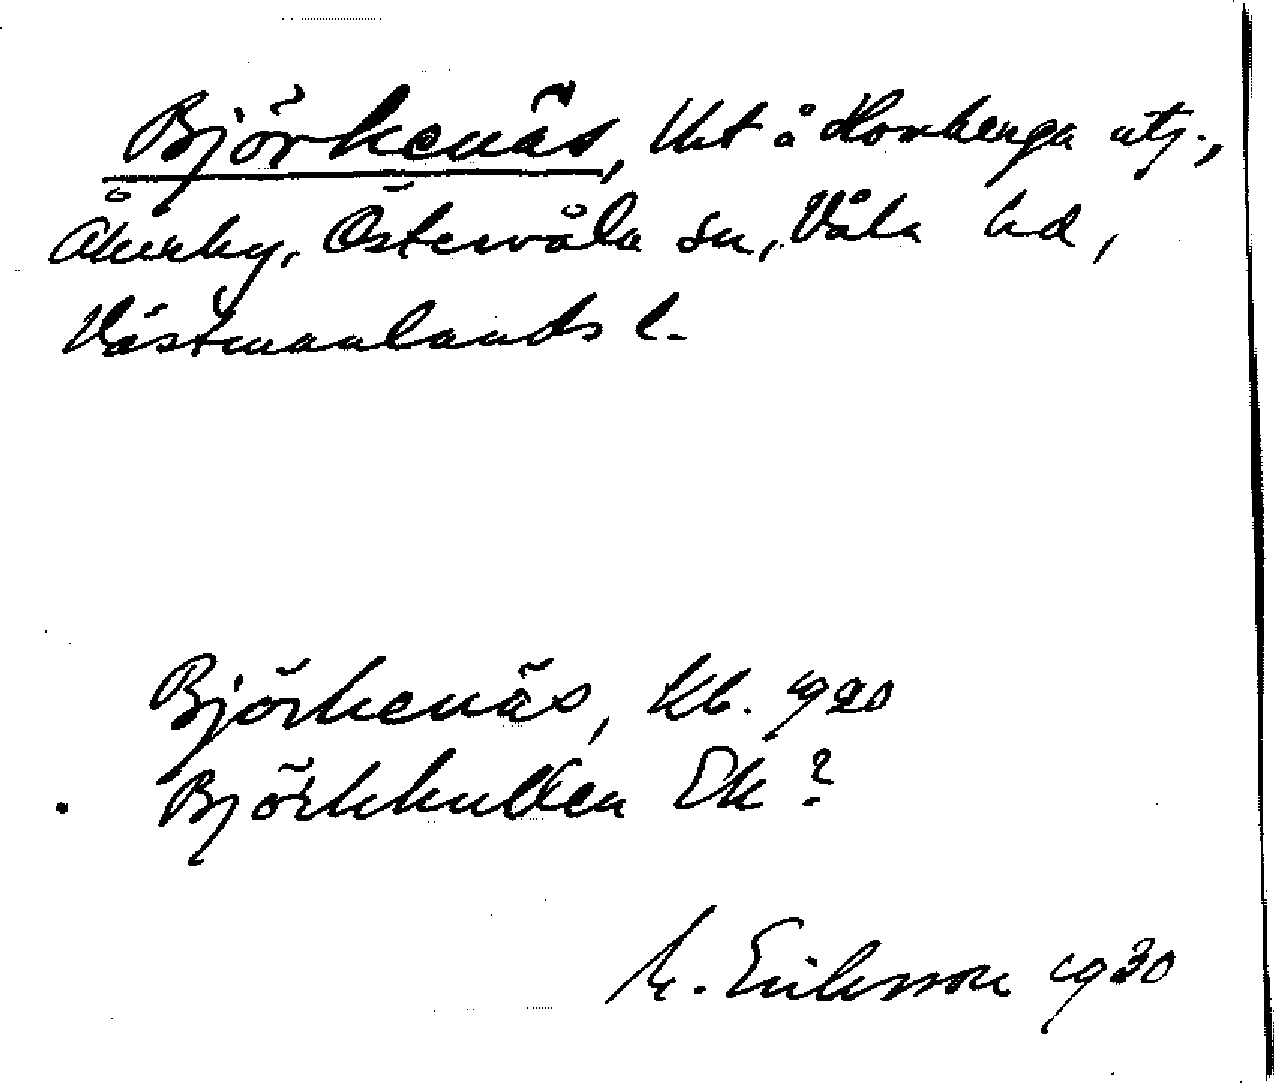 Björkenäs, lht å Horsbenga utj.,
Åkerby, Östervåla sn, Våla hd,
Västmanlands l.
Björkenäs, Kb. 1920
Björkkullen Ek?
M. Eriksson 1930